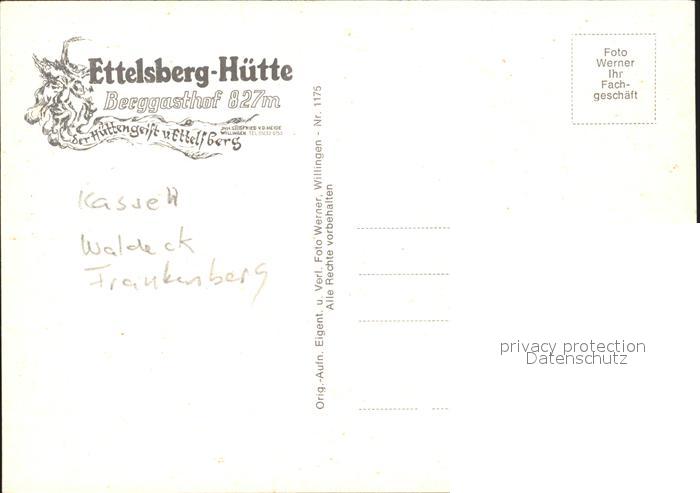 Ettelsberg-Hütte
Berggasthof 827m
der Hüttengeist v. Ettelsberg
Kassel
Waldeck
Frankenberg
Orig.-Aufn. Eigent. u. Verl. Foto Werner, Willingen - Nr. 1175
Alle Rechte vorbehalten
Foto
Werner
Ihr
Fach-
geschäft
privacy protection
Datenschutz